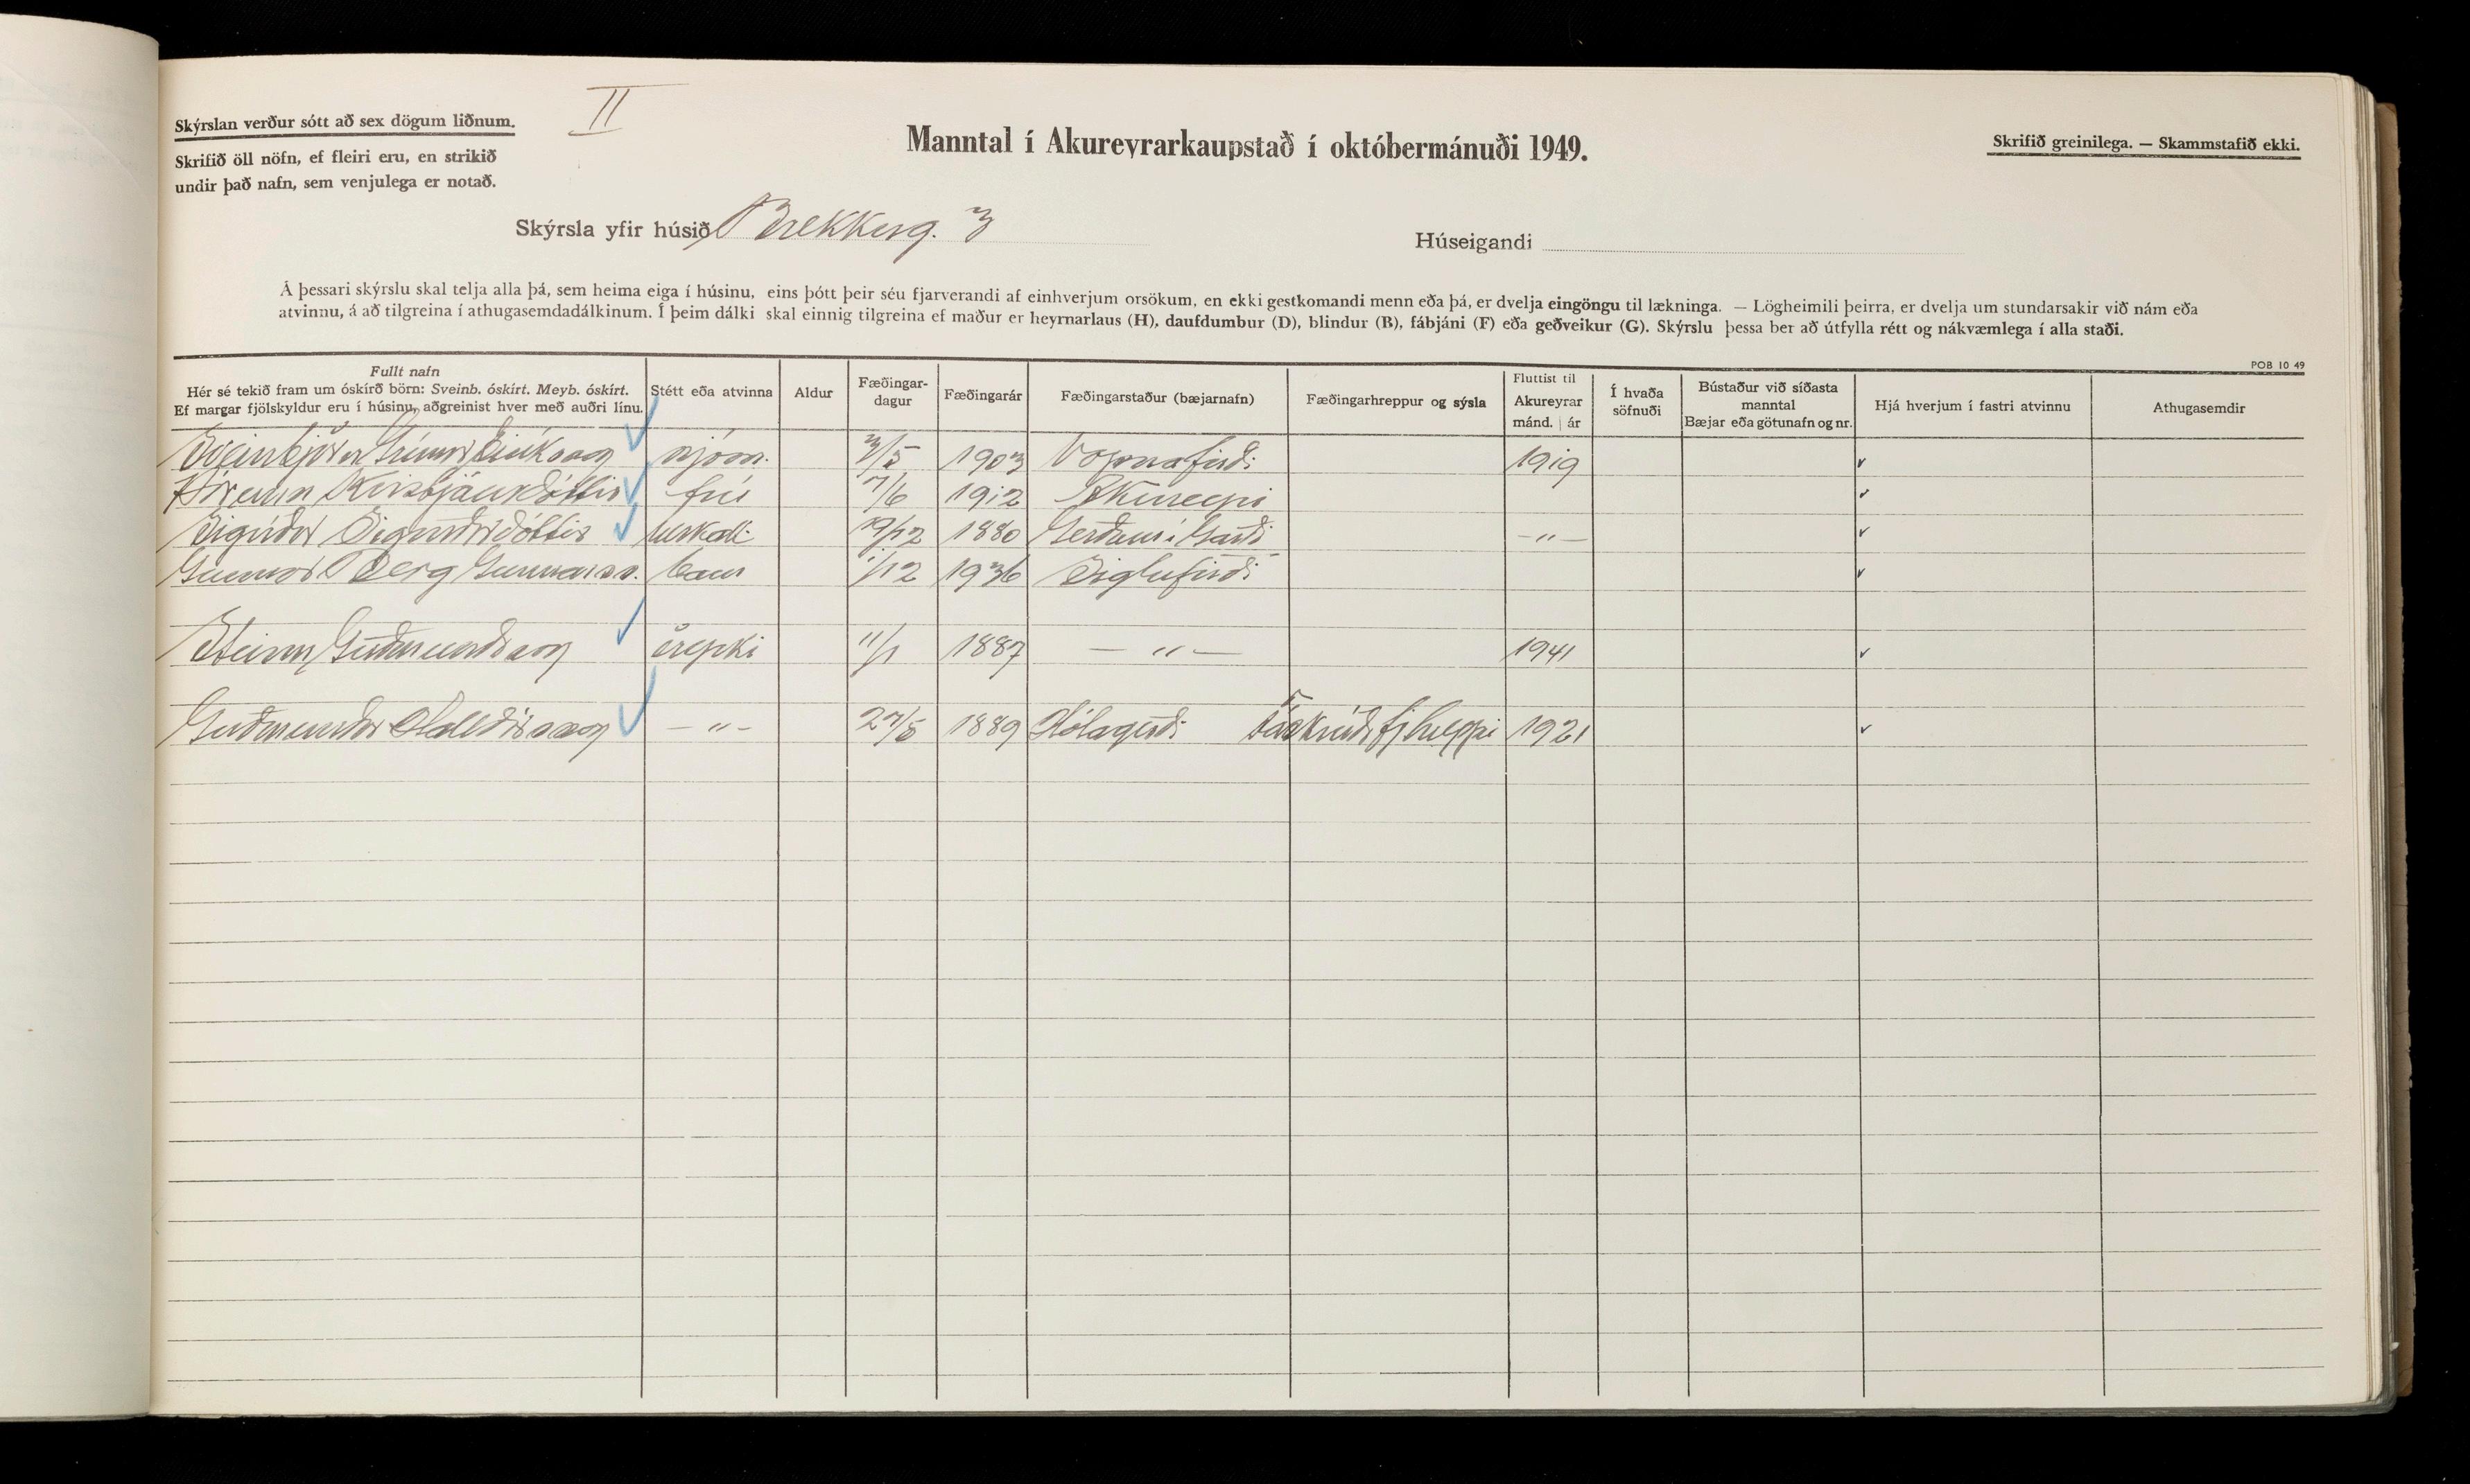 II
Skýrslan verður sótt að sex dögum liðnum.
Skrifið öll nöfn, ef fleiri eru, en strikið
undir það nafn, sem venjulega er notað.
Manntal í Akureyrarkaupstað í októbermánuði 1949.
Skrifið greinilega. — Skammstafið ekki.
Skýrsla yfir húsið Brekkug. 3
Húseigandi
Á þessari skýrslu skal telja alla þá, sem heima eiga í húsinu, eins þótt þeir séu fjarverandi af einhverjum orsökum, en ekki gestkomandi menn eða þá, er dvelja eingöngu til lækninga. — Lögheimili þeirra, er dvelja um stundarsakir við nám eða
atvinnu, á að tilgreina í athugasemdadálkinum. Í þeim dálki skal einnig tilgreina ef maður er heyrnarlaus (H), daufdumbur (D), blindur (B), fábjáni (F) eða geðveikur (G). Skýrslu þessa ber að útfylla rétt og nákvæmlega í alla staði.
POB 10 49
Fullt nafn
Hér sé tekið fram um óskírð börn: Sveinb. óskírt. Meyb. óskírt.
Ef margar fjölskyldur eru í húsinu, aðgreinist hver með auðri línu.
Stétt eða atvinna
Aldur
Fæðingar-
dagur
Fæðingarár
Fæðingarstaður (bæjarnafn)
Fæðingarhreppur og sýsla
Fluttist til
Akureyrar
mánd. | ár
Í hvaða
söfnuði
Bústaður við síðasta
manntal
Bæjar eða götunafn og nr.
Hjá hverjum í fastri atvinnu
Athugasemdir
sjóm. 3/5 1903 Vopnafirði 1919
Kristjánsdóttir frú 7/6 1912 Akureyri
Sigríður Sigurðardóttir 19/12 1880 Gerðum í Garði — " —
Gunnar Berg Gunnarss. barn 1/12 1936 Siglufirði
Steinn Guðmundsson örepki 11/1 1887 — " — 1941
Guðmundur Halldórsson — " — 27/5 1889 Hólagerði Fáskrúðsfjhreppi 1921